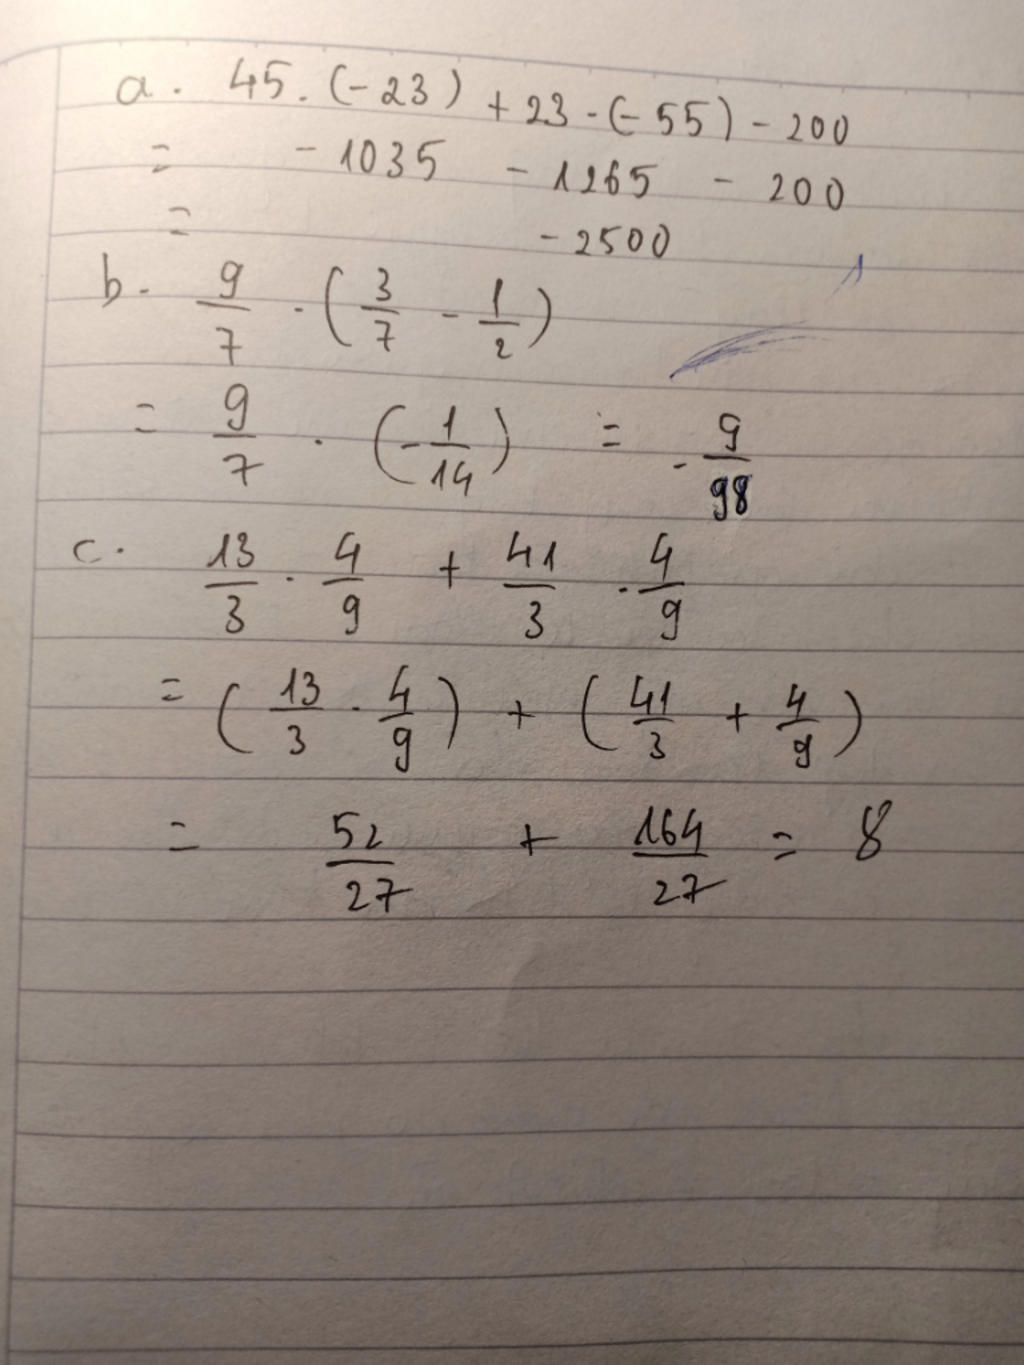 a. 45. (-23) + 23 - (-55) - 200
= -1035 - 1265 - 200
= -2500
b. 9/7 . (3/7 - 1/2)
= 9/7 . (-1/14) = -9/98
c. 13/3 . 4/9 + 41/3 . 4/9
= (13/3 . 4/9) + (41/3 + 4/9)
= 52/27 + 164/27 = 8